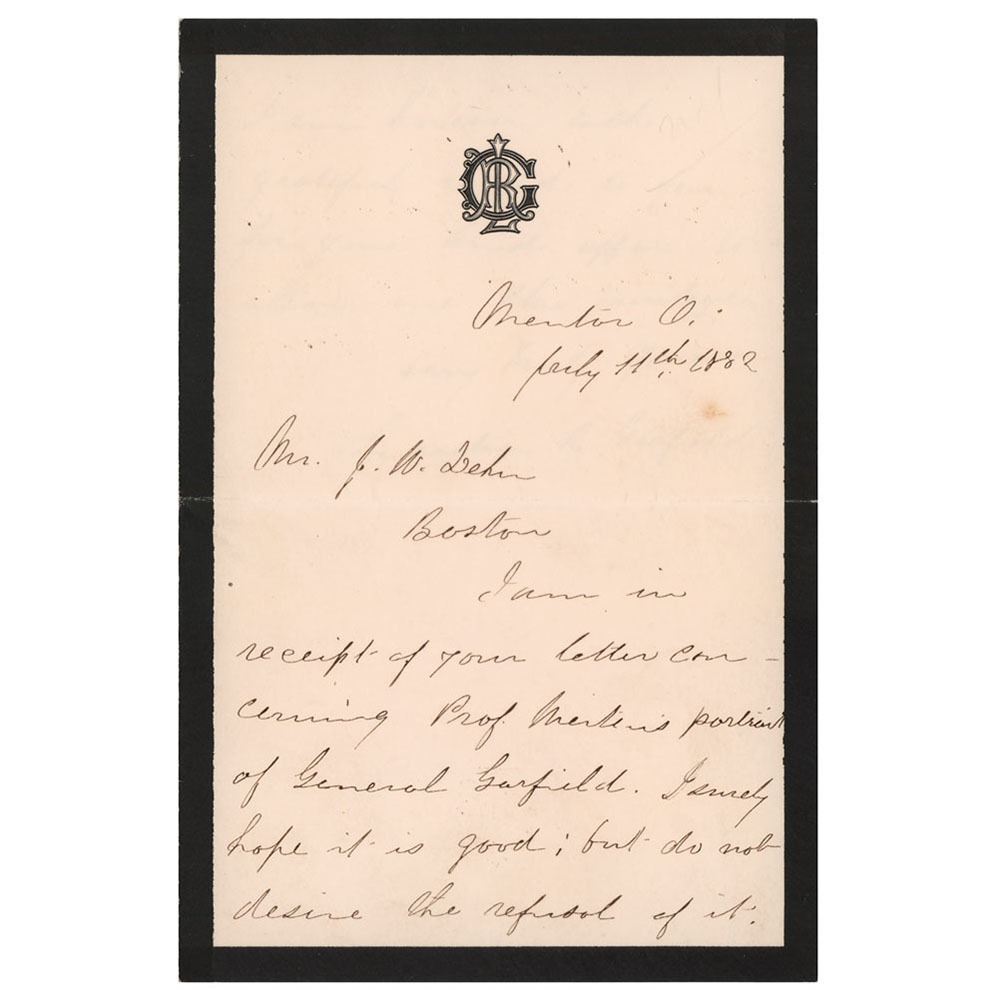 LRG
Mentor O.
July 11th, 1882
Mr. J. W.
Boston
I am in
receipt of your letter con-
cerning Prof. portrait
of General Garfield. I surely
hope it is good; but do not
desire the refusal of it.